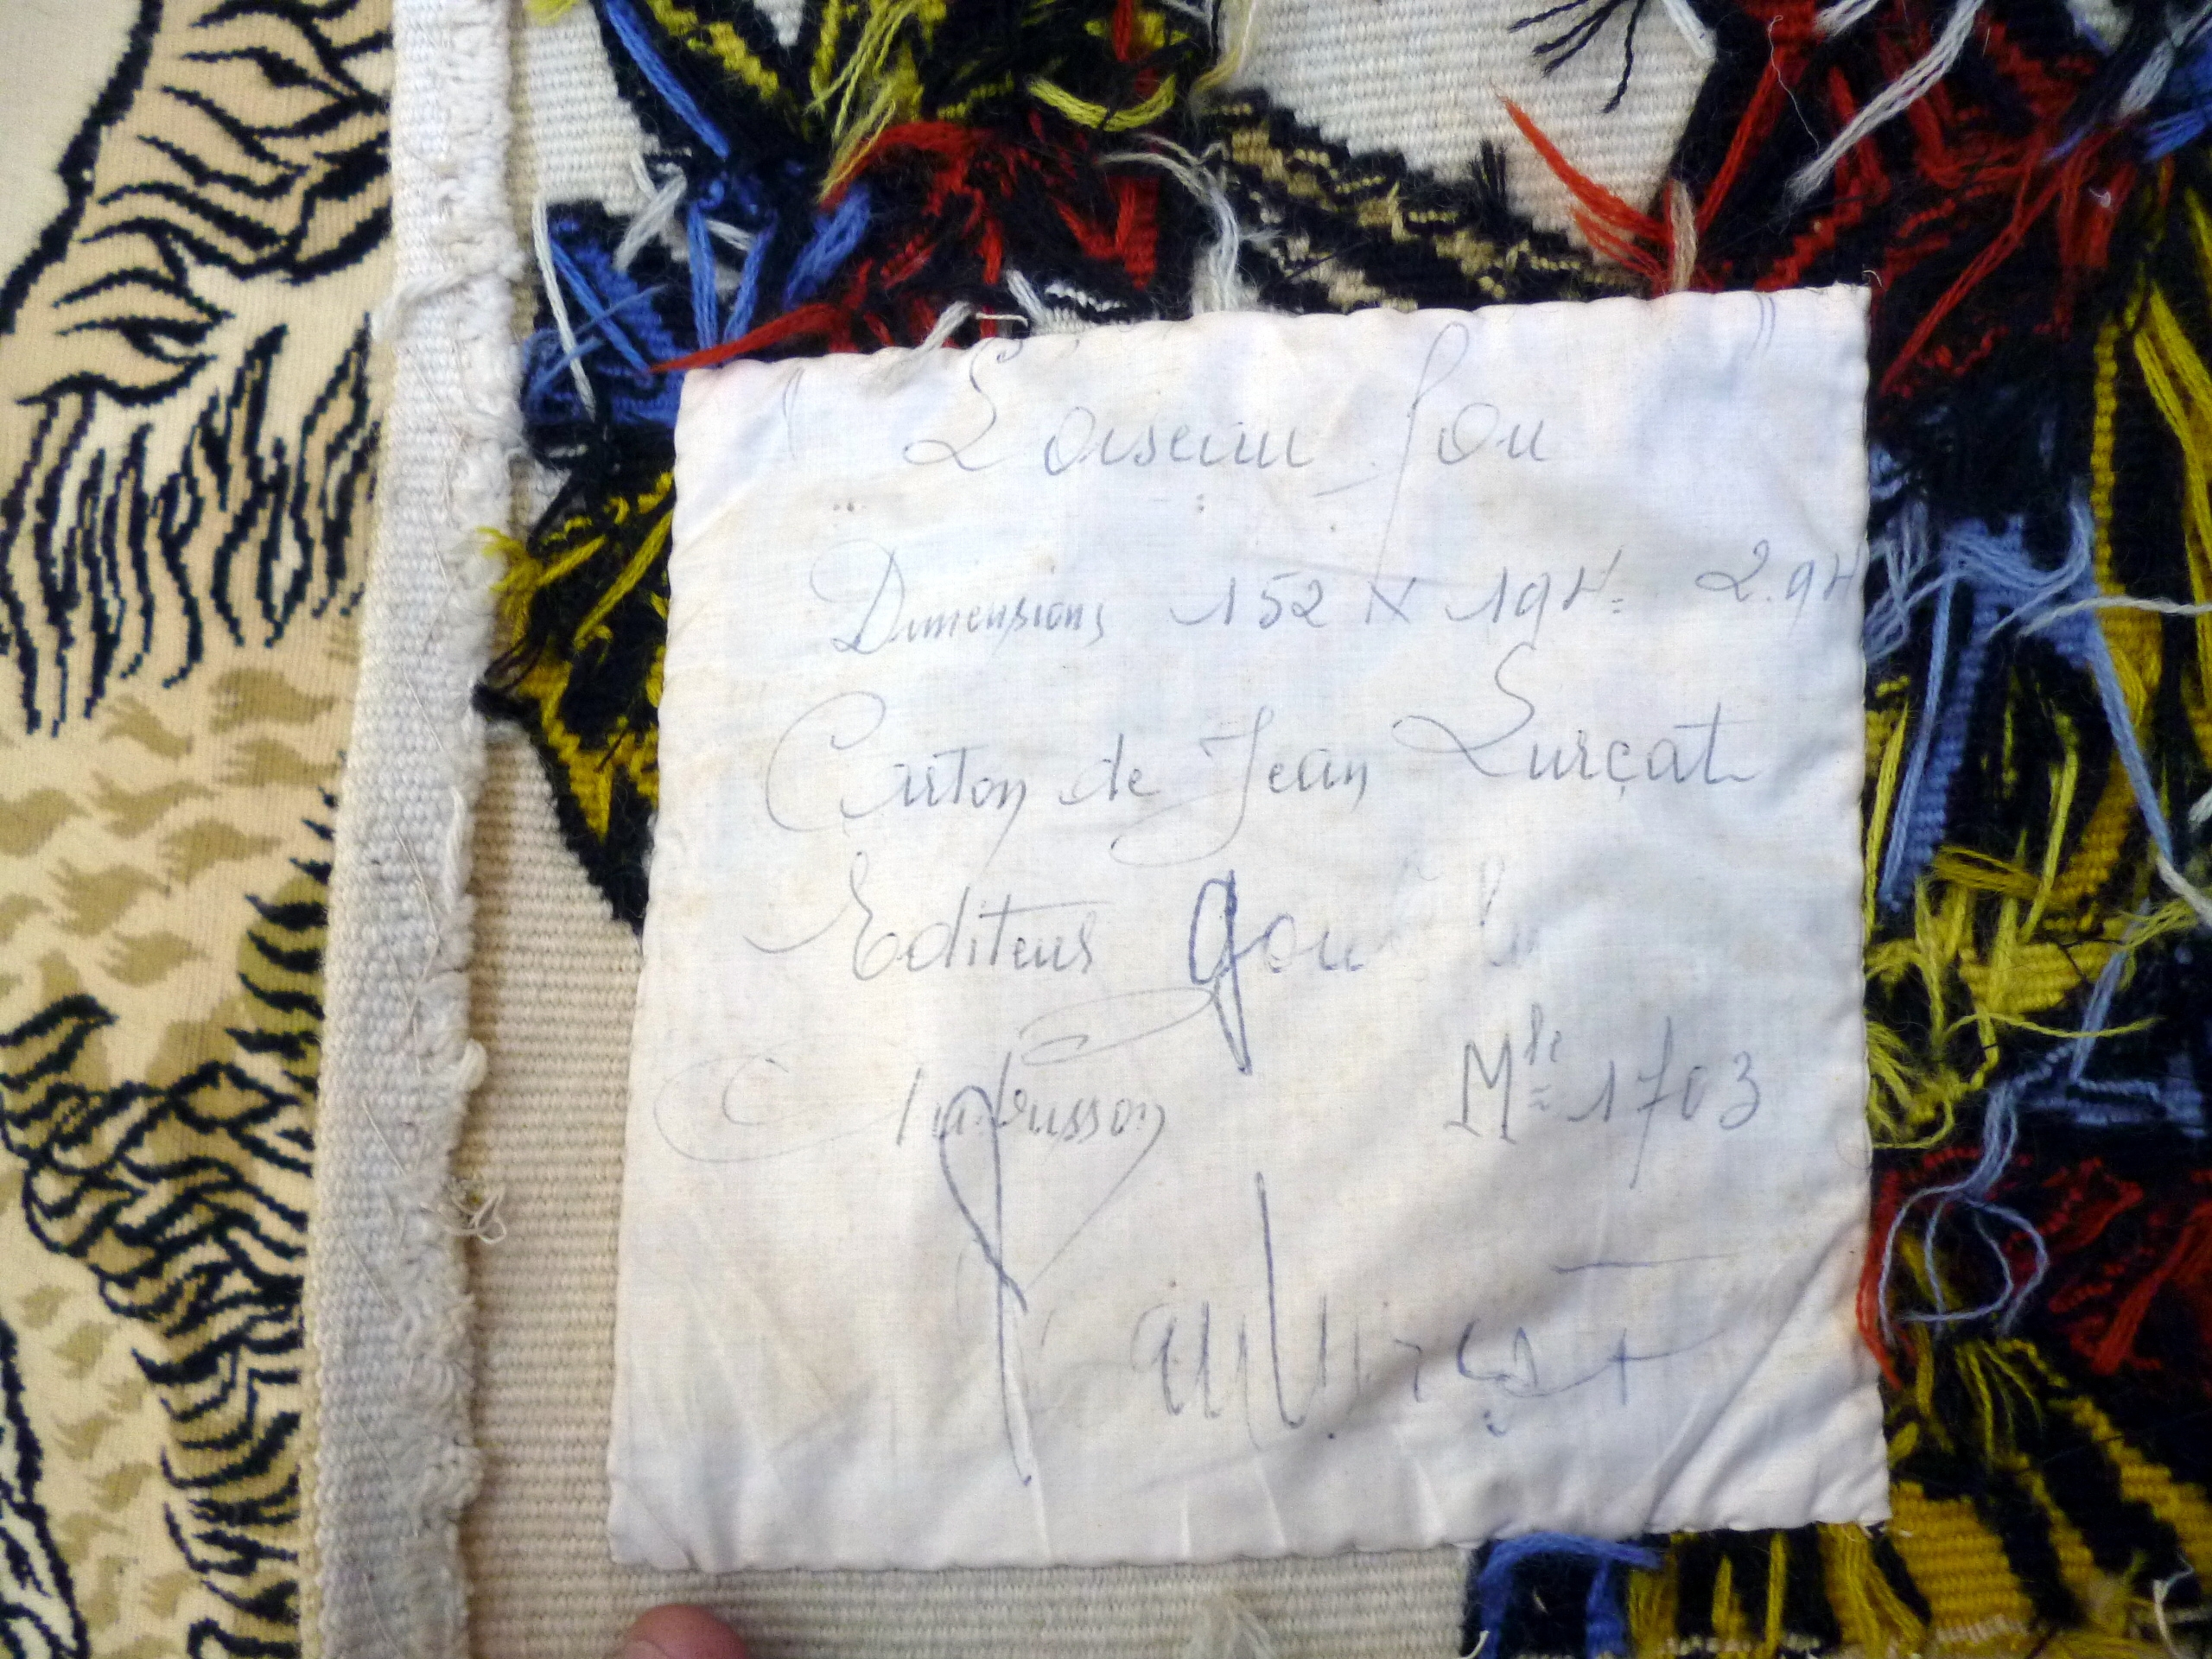 L'oiseau fou
Dimensions 152 X 194 = 2.94
Carton de Jean Lurçat
Editeur
Aubusson Mle = 1703
Jean Lurçat